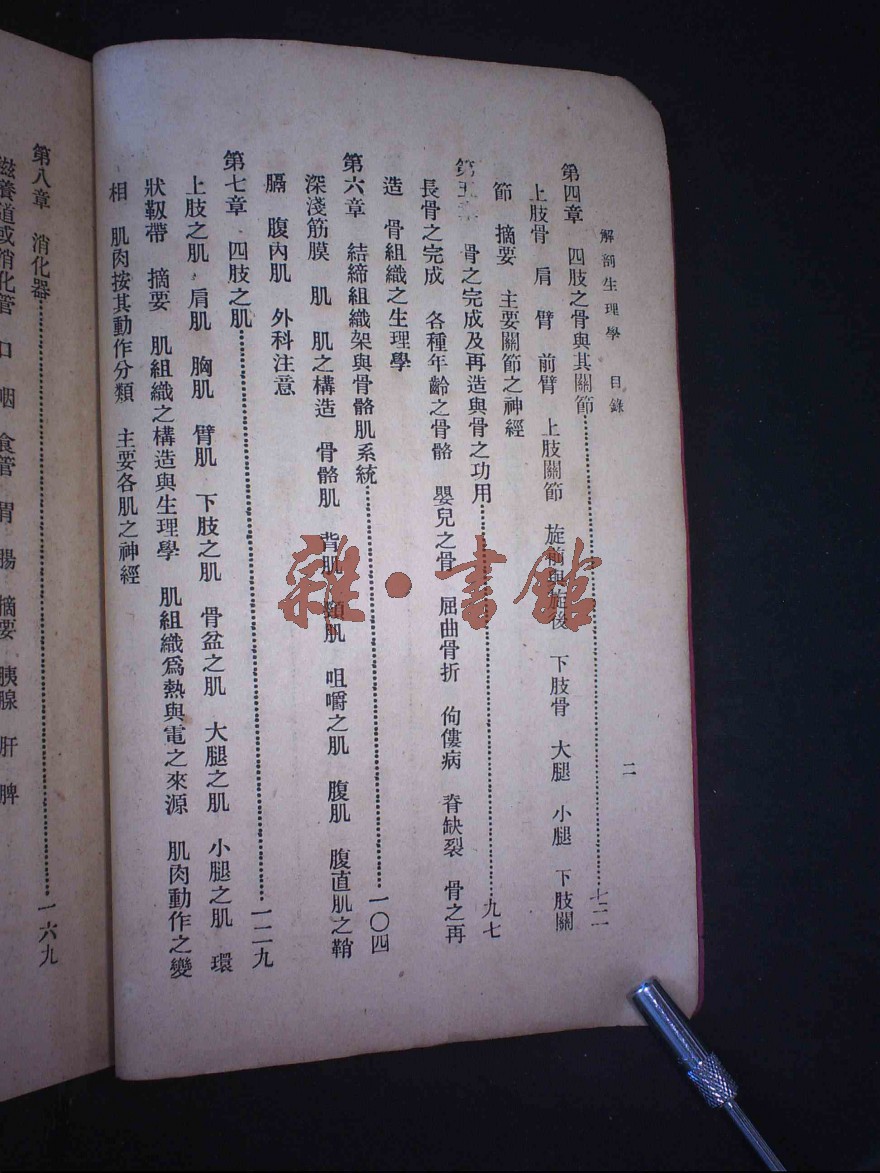 解剖生理學 目錄
二
第四章 四肢之骨與其關節……七二
上肢骨 肩 臂 前臂 上肢關節 旋前與旋後 下肢骨 大腿 小腿 下肢關
節 摘要 主要關節之神經
第五章 骨之完成及再造與骨之功用……九七
長骨之完成 各種年齡之骨骼 嬰兒之骨 屈曲骨折 佝僂病 脊缺裂 骨之再
造 骨組織之生理學
第六章 結締組織架與骨骼肌系統……一〇四
深淺筋膜 肌 肌之構造 骨骼肌 背肌 頸肌 咀嚼之肌 腹肌 腹直肌之鞘
膈 腹內肌 外科注意
第七章 四肢之肌……一二九
上肢之肌 肩肌 胸肌 臂肌 下肢之肌 骨盆之肌 大腿之肌 小腿之肌 環
狀韌帶 摘要 肌組織之構造與生理學 肌組織爲熱與電之來源 肌肉動作之變
相 肌肉按其動作分類 主要各肌之神經
第八章 消化器……一六九
滋養道或消化管 口 咽 食管 胃 腸 摘要 胰腺 肝 脾
雜·書館